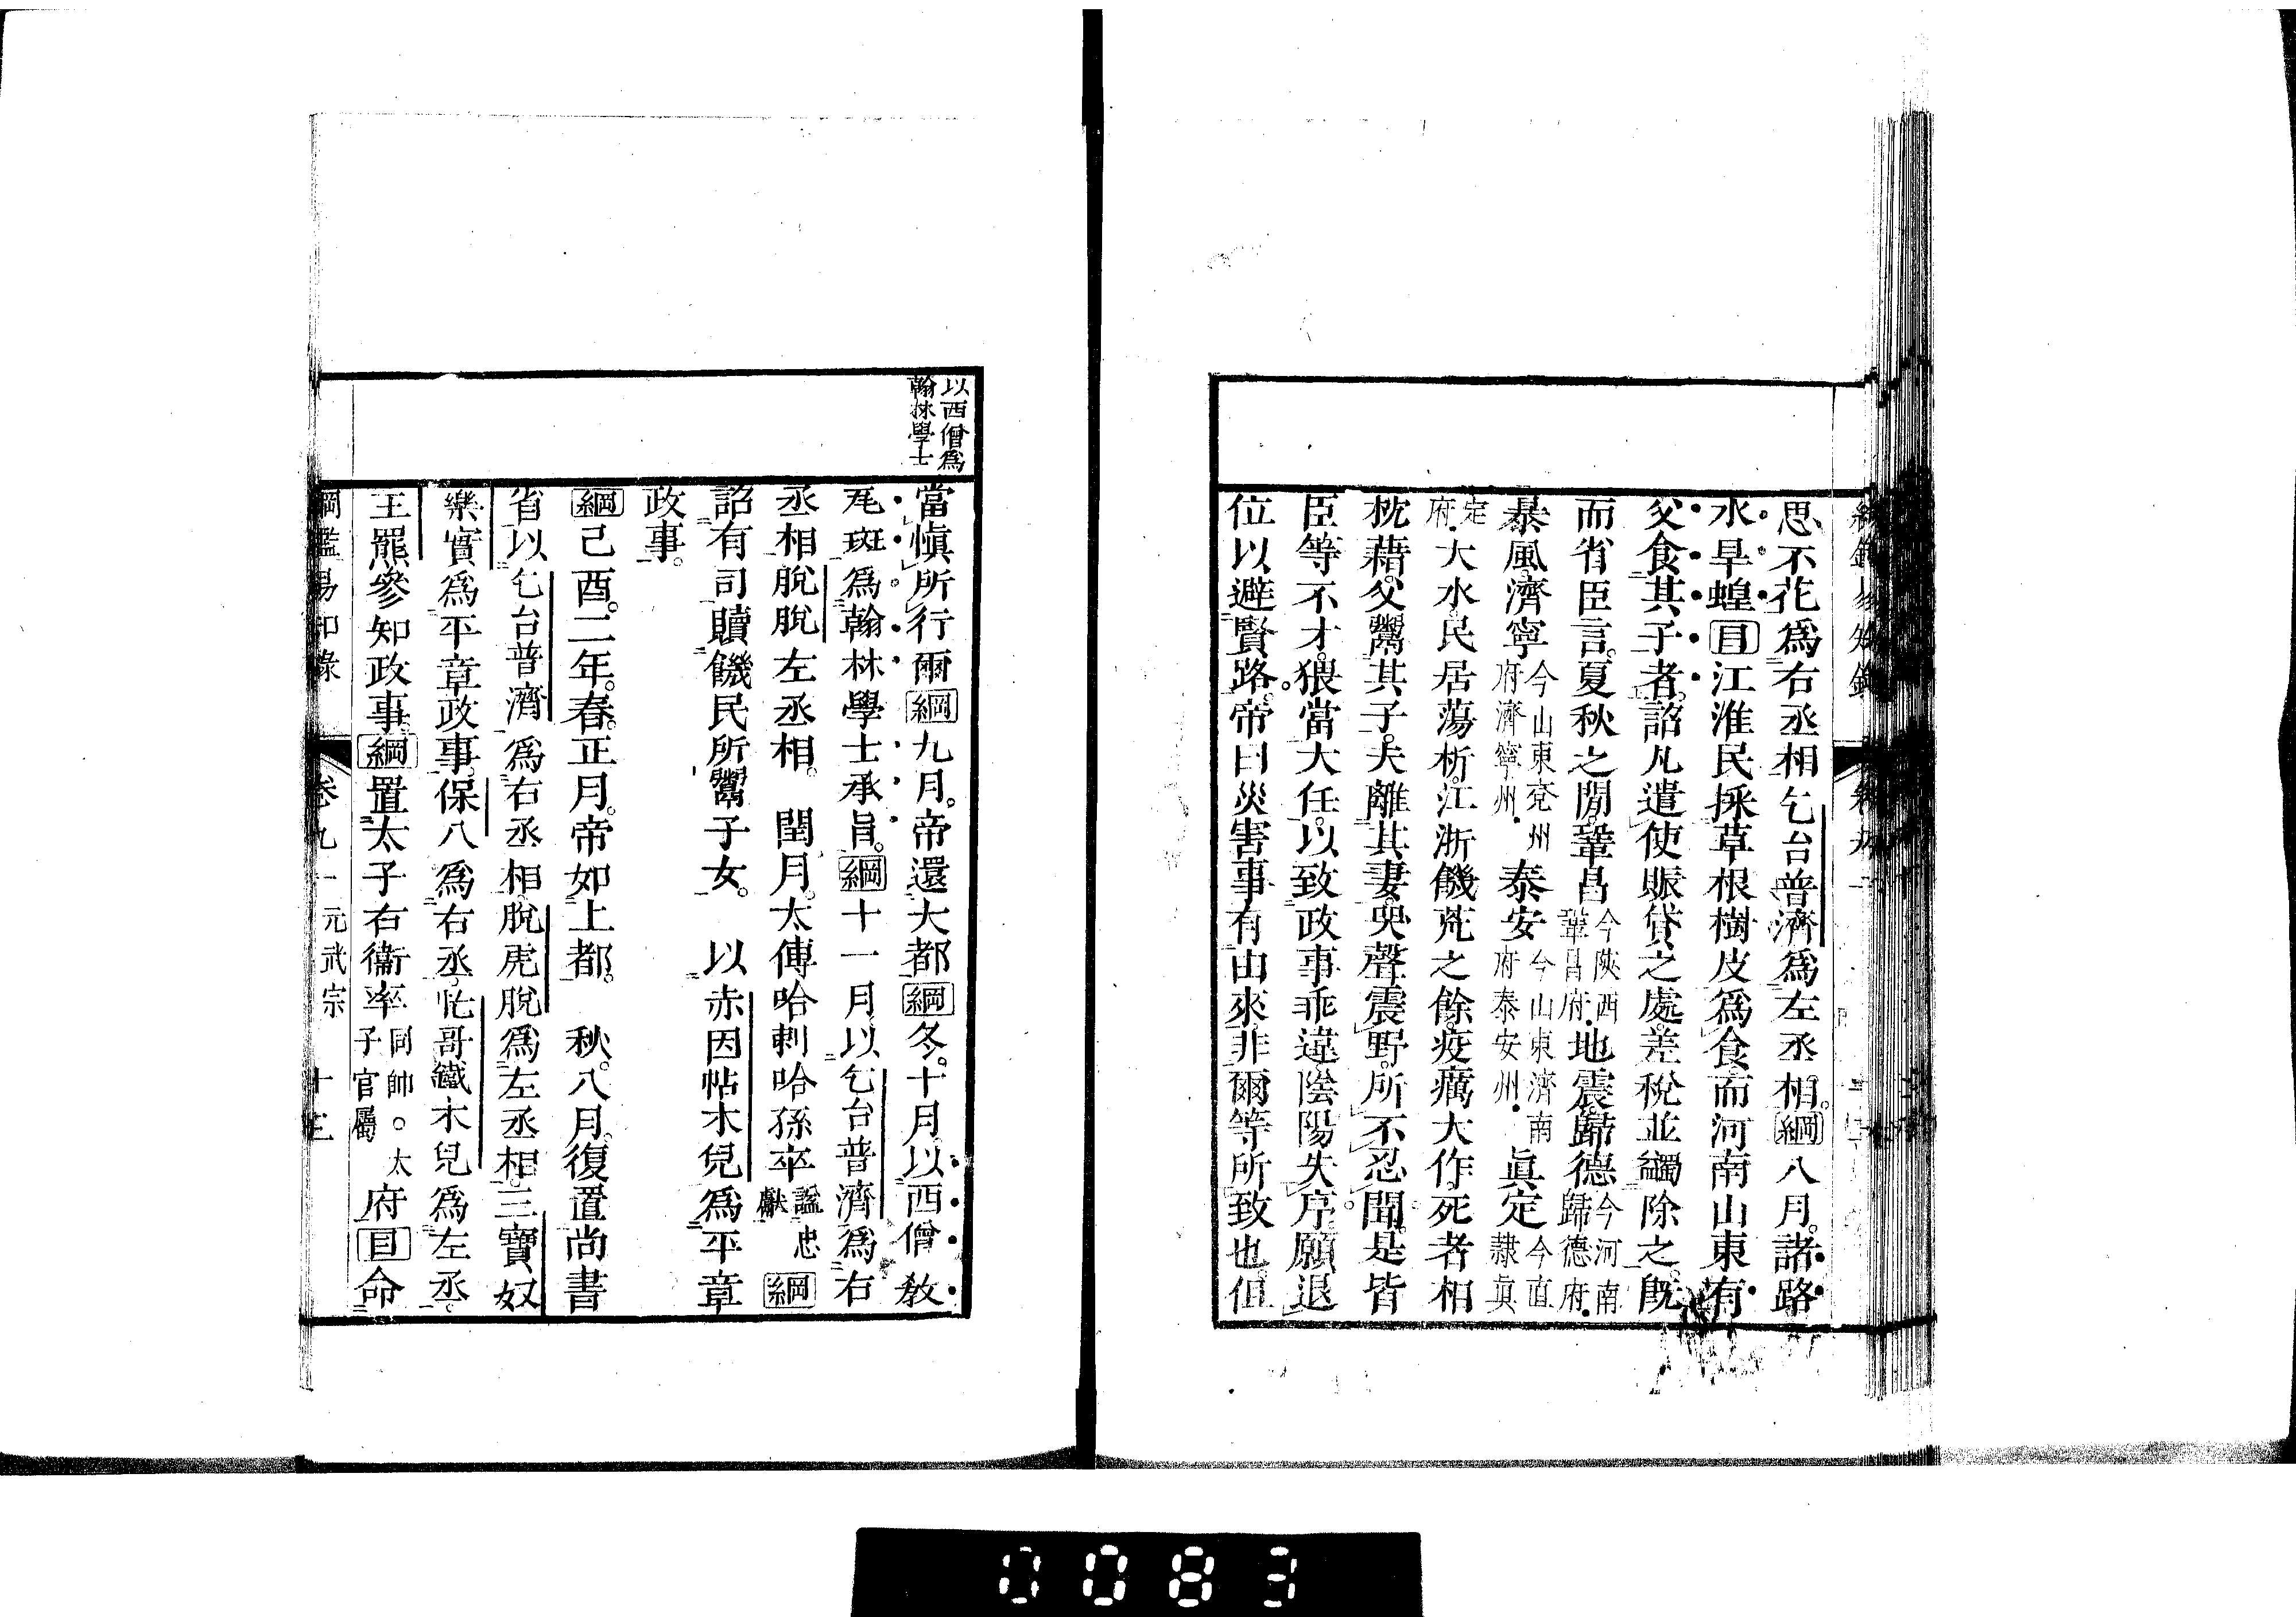 思不花爲右丞相乞台普濟爲左丞相。綱八月。諸路
水旱蝗目江淮民採草根樹皮爲食。而河南山東有
父食其子者。詔凡遣使賑貸之處。差稅並蠲除之。既
而省臣言。夏秋之閒。鞏昌今陝西鞏昌府。地震。歸德今河南歸德府。
暴風。濟寧今山東兗州府濟寧州。泰安今山東濟南府泰安州。眞定今直隸眞
定府。大水。民居蕩析。江浙饑荒之餘。疫癘大作。死者相
枕藉。父鬻其子。夫離其妻。哭聲震野。所不忍聞。是皆
臣等不才。猥當大任。以致政事乖違。陰陽失序。願退
位以避賢路。帝曰。災害事有由來。非爾等所致也。但
以西僧爲
翰林學士
當愼所行爾綱九月。帝還大都綱冬。十月。以西僧敎
瓦班爲翰林學士承旨。綱十一月。以乞台普濟爲右
丞相。脫脫左丞相。 閏月。太傅哈剌哈孫卒諡忠獻綱
詔有司贖饑民所鬻子女。 以赤因帖木兒爲平章
政事。
綱己酉。二年。春。正月。帝如上都。 秋。八月。復置尚書
省以乞台普濟爲右丞相。脫虎脫爲左丞相。三寶奴
樂實爲平章政事。保八爲右丞。忙哥鐵木兒爲左丞。
王羆參知政事。綱置太子右衞率同帥。太子官屬府目命
綱鑑易知錄 卷九一 元武宗 十三